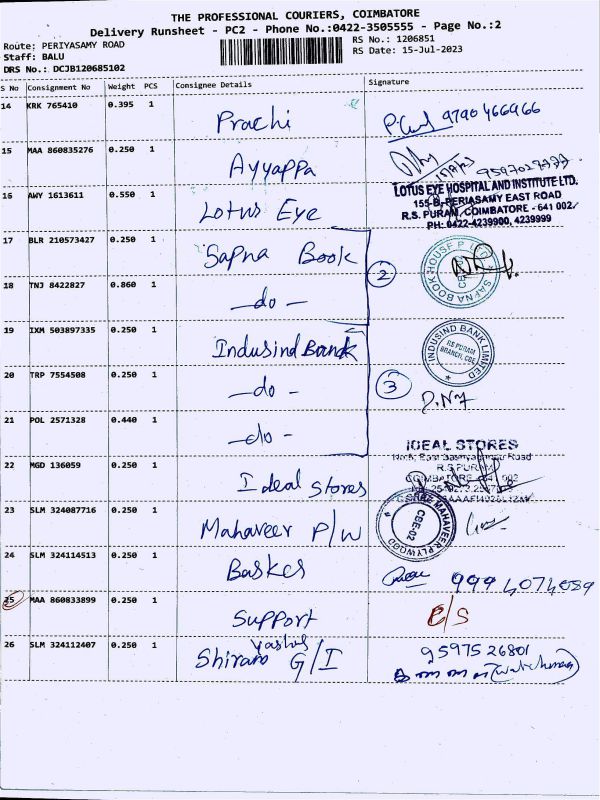 THE PROFESSIONAL COURIERS, COIMBATORE
Delivery Runsheet - PC2 - Phone No.:0422-3505555 - Page No.:2
Route: PERIYASAMY ROAD RS No.: 1206851
Staff: BALU RS Date: 15-Jul-2023
DRS No.: DCJB120685102
S No Consignment No Weight PCS Consignee Details Signature
14 KRK 765410 0.395 1 Prachi 9790466966
15 MAA 860835276 0.250 1 Ayyappa
16 AWY 1613611 0.550 1 Lotus Eye
LOTUS EYE HOSPITAL AND INSTITUTE LTD.
155-B, PERIASAMY EAST ROAD
R.S. PURAM, COIMBATORE - 641 002
PH: 0422-4239900, 4239999
17 BLR 210573427 0.250 1 Sapna Book
SAPNA BOOK HOUSE P LTD
2
18 TNJ 8422827 0.860 1 - do -
19 IXM 503897335 0.250 1 Indusind Bank
INDUSIND BANK LIMITED
RS PURAM
BRANCH, CBE
20 TRP 7554508 0.250 1 - do -
3
21 POL 2571328 0.440 1 - do -
22 MGD 136059 0.250 1 Ideal Stores
IDEAL STORES
R.S.PURAM
23 SLM 324087716 0.250 1 Mahaveer P/W
SHREE MAHAVEER PLYWOOD
CBE-02
24 SLM 324114513 0.250 1 Baskes
25 MAA 860833899 0.250 1 Support
26 SLM 324112407 0.250 1 Shiram G/I
9597526801